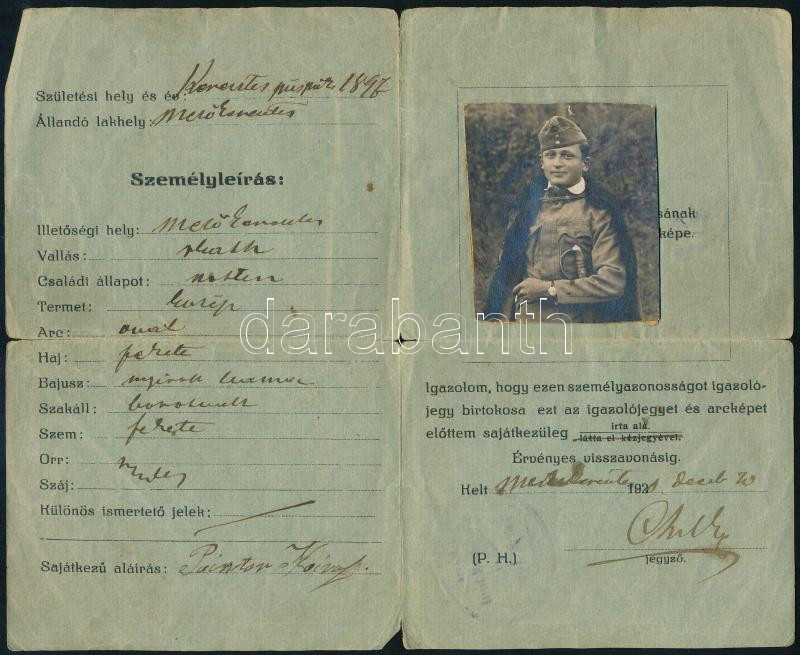 Születési hely és év: Keresztes püspöki 1897
Állandó lakhely: Mezőkeresztes
Személyleírás:
Illetőségi hely: Mezőkeresztes
Vallás:
Családi állapot: nőtlen
Termet: közép
Arc: ovál
Haj: fekete
Bajusz: nyírott barna
Szakáll: borotvált
Szem: fekete
Orr: rendes
Száj:
Különös ismertető jelek:
Sajátkezű aláírás: Pásztor
sának
képe.
Igazolom, hogy ezen személyazonosságot igazoló-
jegy birtokosa ezt az igazolójegyet és arcképet
előttem sajátkezüleg írta alá.
látta el kézjegyével.
Érvényes visszavonásig.
Kelt Mezőkeresztes 1921 decemb 20
(P. H.)
jegyző.
darabanth